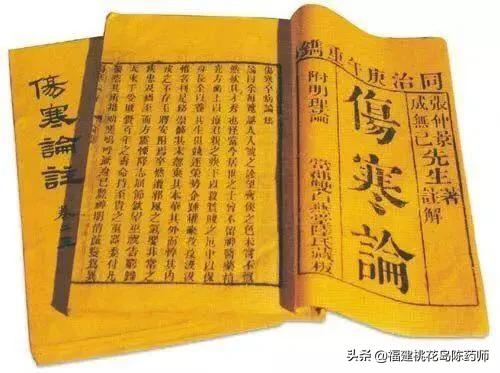 同治庚午重鐫
張仲景
成無己
先生
著
註解
傷寒論
附明理論
常郡雙白燕堂陸氏藏板
傷寒卒病論集
論曰余每覽越人入虢之診望齊侯之色未嘗不慨
然歎其才秀也怪當今居世之士曾不留神醫藥精
究方術上以療君親之疾下以救貧賤之厄中以保
身長全以養其生但競逐榮勢企踵權豪孜孜汲汲
惟名利是務崇飾其末忽棄其本華其外而悴其內
皮之不存毛將安附焉卒然遭邪風之氣嬰非常之
疾患及禍至而方震慄降志屈節欽望巫祝告窮歸
天束手受敗賫百年之壽命持至貴之重器委付凡
醫恣其所措咄嗟嗚呼厥身已斃神明消滅變為異
傷寒論註
卷二三
头条 @福建桃花岛陈药师